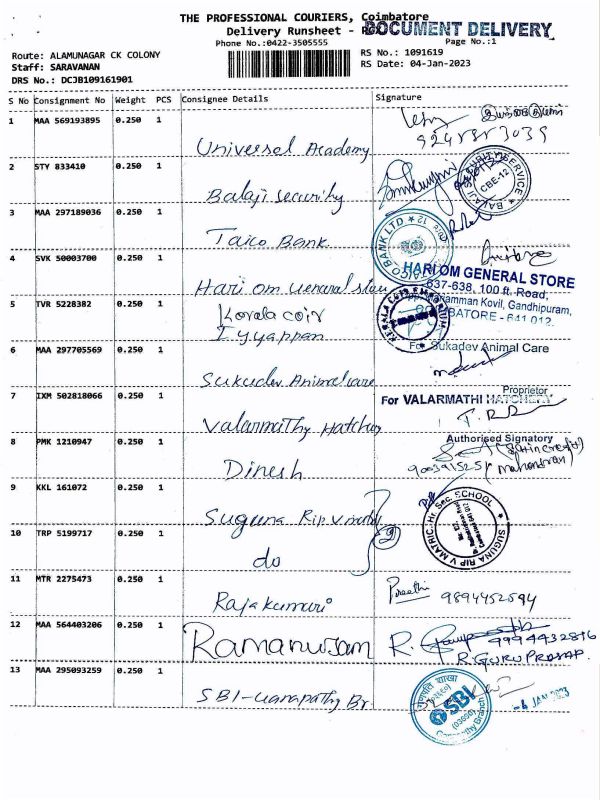 THE PROFESSIONAL COURIERS, Coimbatore
Delivery Runsheet -
DOCUMENT DELIVERY
Phone No.:0422-3505555
Page No.:1
Route: ALAMUNAGAR CK COLONY
RS No.: 1091619
Staff: SARAVANAN
RS Date: 04-Jan-2023
DRS No.: DCJB109161901
S No Consignment No Weight PCS Consignee Details Signature
1 MAA 569193895 0.250 1
Universal Academy
2 STY 833410 0.250 1
Balaji Security
CBE-12
3 MAA 297189036 0.250 1
Taico Bank
4 SVK 50003700 0.250 1
Hari om General store
HARI OM GENERAL STORE
637-638, 100 ft. Road,
Kovil, Gandhipuram,
COIMBATORE - 641 012.
5 TVR 5228382 0.250 1
Kerala coir
Iyyappan
6 MAA 297705569 0.250 1
For Sukadev Animal Care
Sukudev Animal care
Proprietor
7 IXM 502818066 0.250 1
For VALARMATHI HATCHERY
Valarmathy Hatchery
Authorised Signatory
8 PMK 1210947 0.250 1
Dinesh
9003915251
9 KKL 161072 0.250 1
Suguna Rip V
SUGUNA RIP V MATRIC. Hr. Sec. SCHOOL
10 TRP 5199717 0.250 1
do
11 MTR 2275473 0.250 1
Rajakumari
Preethi 9894452594
12 MAA 564403206 0.250 1
Ramanujam
9994432816
R. GURU PRASAP.
13 MAA 295093259 0.250 1
SBI-Ganapathy Br.
SBI